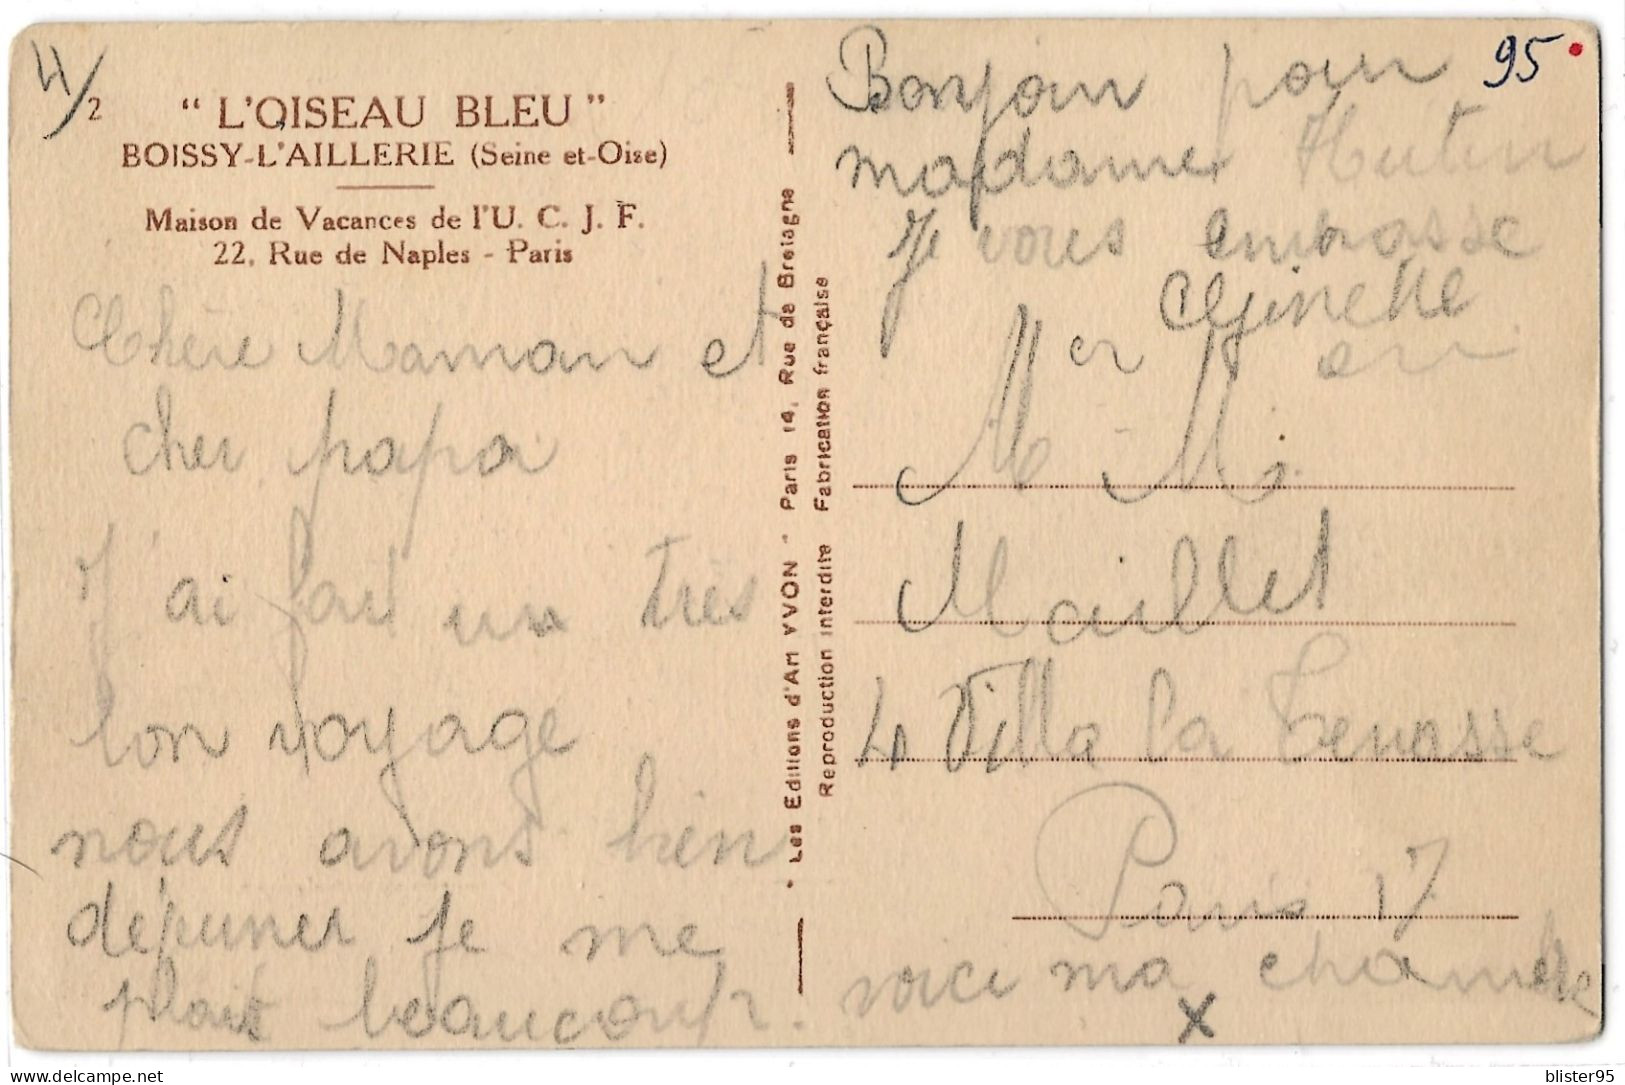 4/2
"L'OISEAU BLEU"
BOISSY-L'AILLERIE (Seine et-Oise)
Maison de Vacances de l'U. C. J. F.
22, Rue de Naples - Paris
Chère Maman et
cher papa
J'ai fait un très
bon voyage
nous avons bien
déjeuner je me
plait beaucoup.
Les Editions d'Art YVON - Paris 14, Rue de Bretagne
Reproduction interdite Fabrication française
95
Bonjour pour
madame Hutin
Je vous embrasse
Ginette
Mr - M
Maillet
4 Villa la Terrasse
Paris 17
voici ma chambre
X
blister95